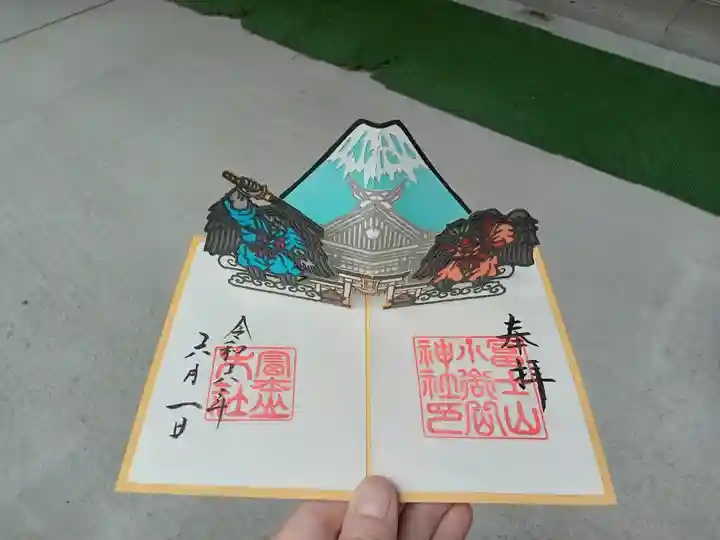 奉拝
冨士山
小御嶽
神社印
令和六年
六月一日